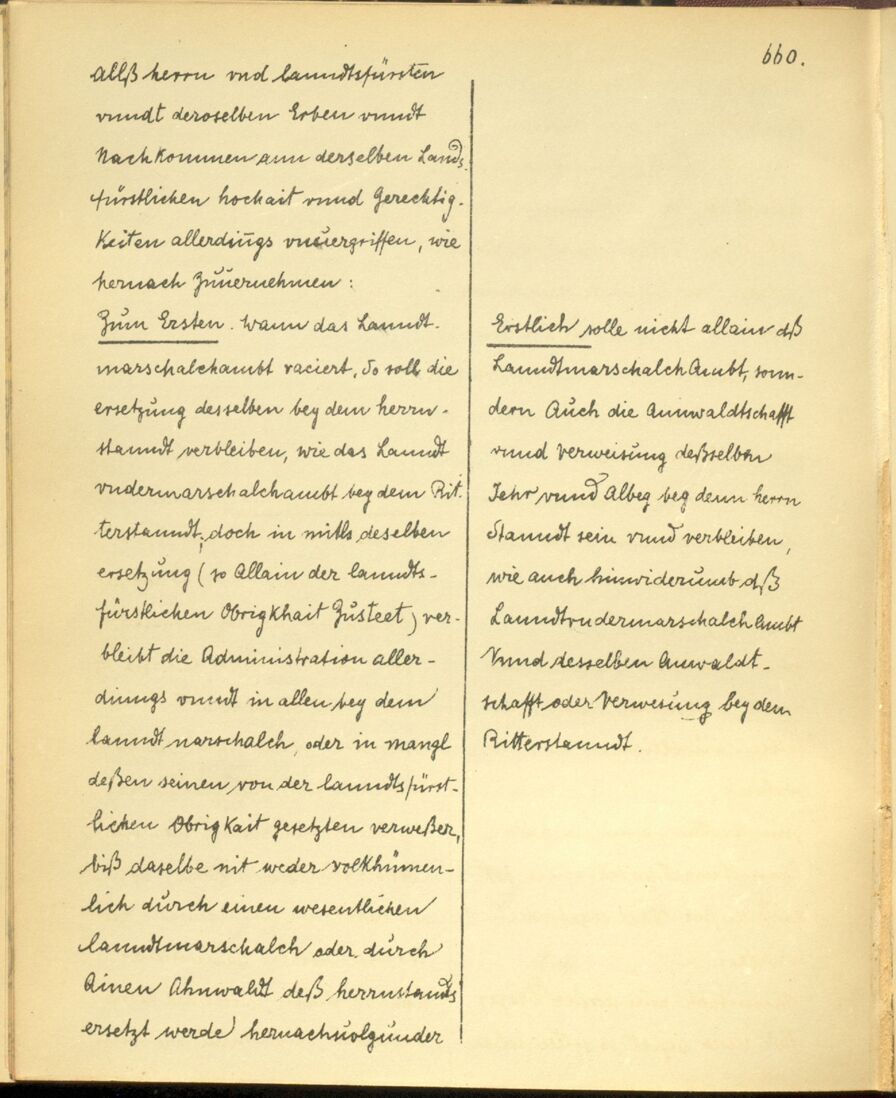 660.
allß herrn vnd lanndtsfürsten
vnndt deroselben Erben vnndt
Nachkommen ann derselben Lands-
fürstlichen hochait vnnd Gerechtig-
keiten allerdings vnuergriffen, wie
hernach Zuuernehmen:
Zum Ersten. Wann das Lanndt-
marschalchambt raciert, So soll die
ersetzung desselben bey dem herrn-
stanndt verbleiben, wie das Lanndt
vndermarschalchambt bey dem Rit-
terstanndt, doch in mitls deselben
ersetzung (so Allain der lanndts-
fürstlichen Obrigkhait Zusteet) ver-
bleibt die Administration aller-
dinngs vnndt in allen bey dem
lanndtmarschalch, oder in mangl
deßen seinen von der lanndtsfürst-
lichen Obrigkait gesetzten verweßer,
biß daselbe nit weder volkhümen-
lich durch einen wesentlichen
lanndtmarschalch oder durch
Ainen Ahnwaldt deß herrnstandts
ersetzt werde hernachuolgunder
Erstlich solle nicht allain dß
LanndtmarschalchAmbt, sonn-
dern Auch die Annwaldtschafft
vnnd Verweisung deßselben
Jehr vnnd Albeg beg denn herrn
Stanndt sein vnnd verbleiben,
wie auch hinwiderumb dß
LanndtvndermarschalchAmbt
Vnnd desselben Anwaldt-
schafft oder Verwesung bey dem
Ritterstanndt.